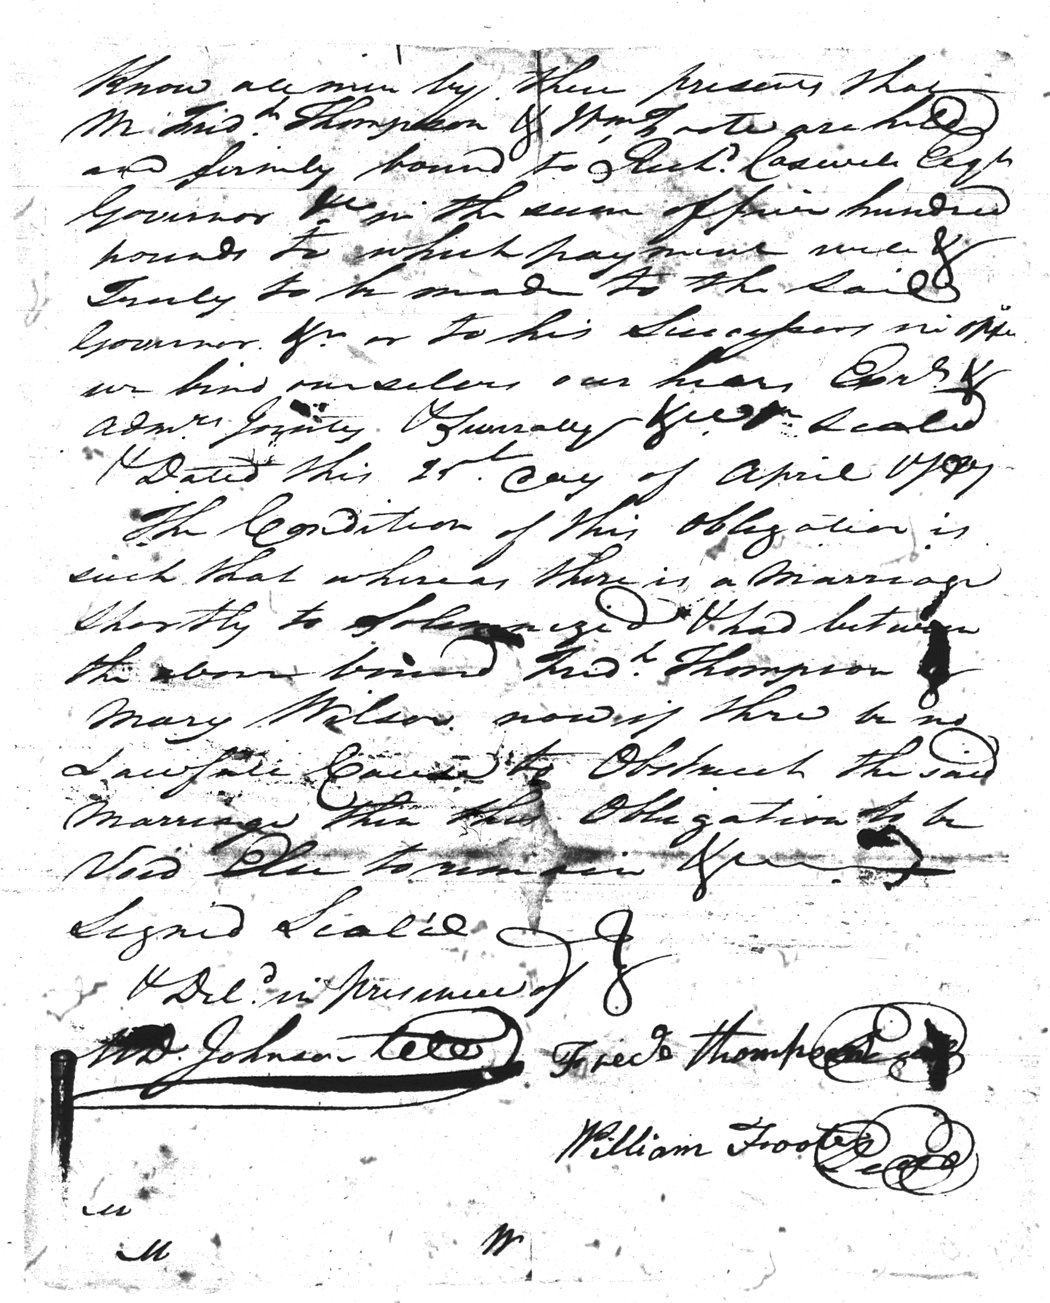 Know all men by these presents that
We Fred.k Thompson & Wm Foote are held
and firmly bound to Rich.d Caswell Esq.r
Governor &c in the sum of five hundred
pounds to which payment well &
Truly to be made to the said
Governor &c or to his Successors in offi
we bind ourselves our heirs Exr.s &
Adm.rs Jointly & Surrally Sealed
& Dated this 25.t day of April 1787
The Condition of this Obligation is
such that whereas there is a Marriage
Shortly to Solemnized & had between
the above bound Fred.k Thompson &
Mary Wilson now if thre be no
Lawfull Cause to Obstruct the said
Marriage then this Obligation to be
Void Else to remain &c
Signed Seal'd
& Del.d in presence of
Wd. Johnson Fred.k Thompson Seal
William Foote Seal
M
M W